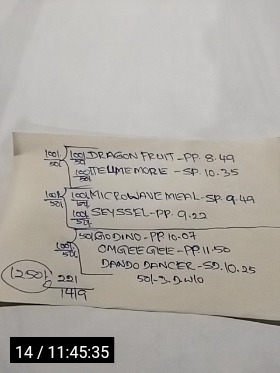 100/50 100/50 DRAGON FRUIT - PP. 8.49
100/50 TELLMEMORE - SP. 10.35
100/50 100/50 MICROWAVE MEAL - SP. 9.49
100/50 SEYSSEL - PP. 9.22
50/ GODINO - PP. 10.07
100/50 OMGEEGEE - PP. 11.50
DANDO DANCER - SP. 10.25
1250/ 221 50/- 3. D.W/O
1419
14 / 11:45:35